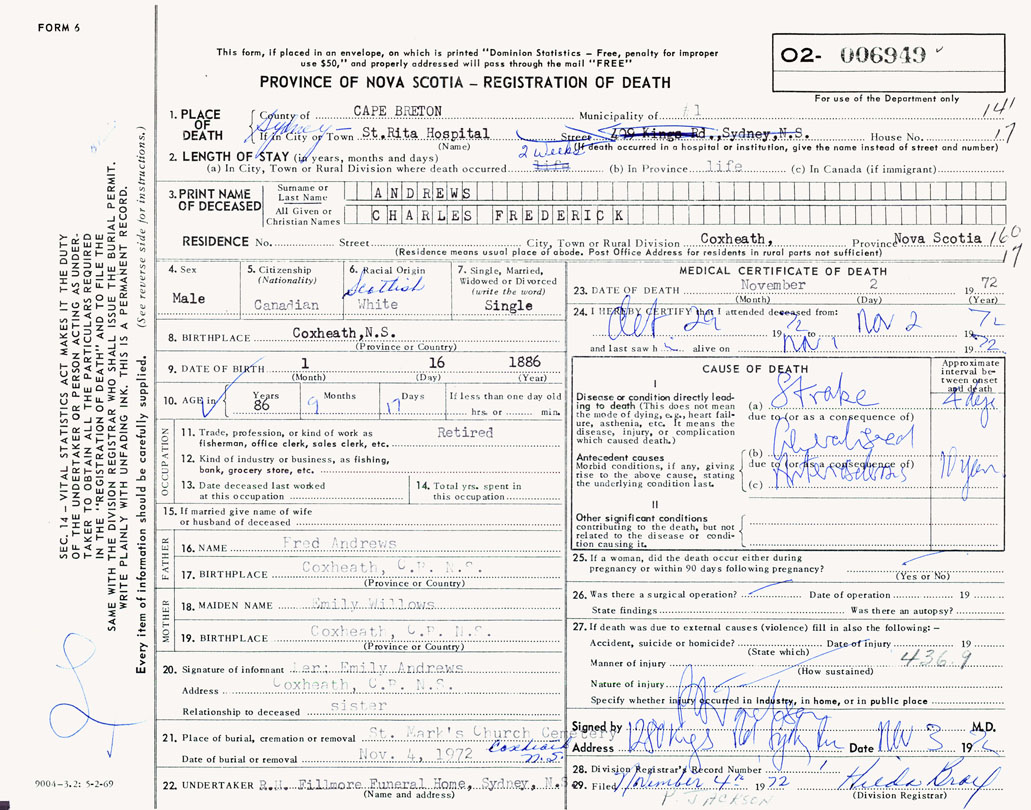 FORM 6
This form, if placed in an envelope, on which is printed "Dominion Statistics – Free, penalty for improper
use $50," and properly addressed will pass through the mail "FREE"
PROVINCE OF NOVA SCOTIA – REGISTRATION OF DEATH
O2- 006949
For use of the Department only
141
17
1. PLACE OF DEATH
County of CAPE BRETON Municipality of #1
Sydney –
If in City or Town St.Rita Hospital Street 409 Kings Rd.,Sydney,N.S. House No.
(Name) (If death occurred in a hospital or institution, give the name instead of street and number)
2. LENGTH OF STAY (in years, months and days)
2 weeks
(a) In City, Town or Rural Division where death occurred life (b) In Province life (c) In Canada (if immigrant)
3. PRINT NAME OF DECEASED
Surname or Last Name ANDREWS
All Given or Christian Names CHARLES FREDERICK
RESIDENCE No. Street City, Town or Rural Division Coxheath, Province Nova Scotia 160
17
(Residence means usual place of abode. Post Office Address for residents in rural parts not sufficient)
4. Sex
Male
5. Citizenship
(Nationality)
Canadian
6. Racial Origin
Scottish
White
7. Single, Married,
Widowed or Divorced
(write the word)
Single
8. BIRTHPLACE Coxheath,N.S.
(Province or Country)
9. DATE OF BIRTH 1 16 1886
(Month) (Day) (Year)
10. AGE in Years 86 Months 9 Days 17 If less than one day old
hrs. or min.
OCCUPATION
11. Trade, profession, or kind of work as Retired
fisherman, office clerk, sales clerk, etc.
12. Kind of industry or business, as fishing,
bank, grocery store, etc.
13. Date deceased last worked
at this occupation
14. Total yrs. spent in
this occupation
15. If married give name of wife
or husband of deceased
FATHER
16. NAME Fred Andrews
17. BIRTHPLACE Coxheath, C.B. N.S.
(Province or Country)
MOTHER
18. MAIDEN NAME Emily Willows
19. BIRTHPLACE Coxheath, C.B. N.S.
(Province or Country)
20. Signature of informant Per: Emily Andrews
Address Coxheath, C.B. N.S.
Relationship to deceased sister
21. Place of burial, cremation or removal St. Mark's Church Cemetery
Coxheath
N.S.
Date of burial or removal Nov. 4, 1972
22. UNDERTAKER R.H. Fillmore Funeral Home, Sydney, N.S.
(Name and address)
MEDICAL CERTIFICATE OF DEATH
23. DATE OF DEATH November 2 1972
(Month) (Day) (Year)
24. I HEREBY CERTIFY that I attended deceased from:
Oct 29 1972 to Nov 2 1972
and last saw h alive on Nov 1 1972
CAUSE OF DEATH
Approximate
interval be-
tween onset
and death
I
Disease or condition directly lead-
ing to death (This does not
mean the mode of dying, e.g., heart fail-
ure, asthenia, etc. It means the
disease, injury, or complication
which caused death.)
(a) Stroke 4 days
due to (or as a consequence of)
Antecedent causes
Morbid conditions, if any, giving
rise to the above cause, stating
the underlying condition last.
(b) Generalized
due to (or as a consequence of)
(c) Arteriosclerosis 10 years
II
Other significant conditions
contributing to the death, but not
related to the disease or condi-
tion causing it.
25. If a woman, did the death occur either during
pregnancy or within 90 days following pregnancy?
(Yes or No)
26. Was there a surgical operation? Date of operation 19
State findings Was there an autopsy?
27. If death was due to external causes (violence) fill in also the following: –
Accident, suicide or homicide? Date of injury 19
(State which)
436.9
Manner of injury
(How sustained)
Nature of injury
Specify whether injury occurred in industry, in home, or in public place
Signed by M.D.
Address 1280 Kings Rd Sydney Date Nov 3 1972
28. Division Registrar's Record Number
29. Filed November 4th 1972
(Division Registrar)
P. JACKSON
SEC. 14 – VITAL STATISTICS ACT MAKES IT THE DUTY
OF THE UNDERTAKER OR PERSON ACTING AS UNDER-
TAKER TO OBTAIN ALL THE PARTICULARS REQUIRED
IN THE "REGISTRATION OF DEATH" AND TO FILE THE
SAME WITH THE DIVISION REGISTRAR WHO SHALL ISSUE THE BURIAL PERMIT.
WRITE PLAINLY WITH UNFADING INK. THIS IS A PERMANENT RECORD.
Every item of information should be carefully supplied. (See reverse side for instructions.)
9004-3.2: 5-2-69